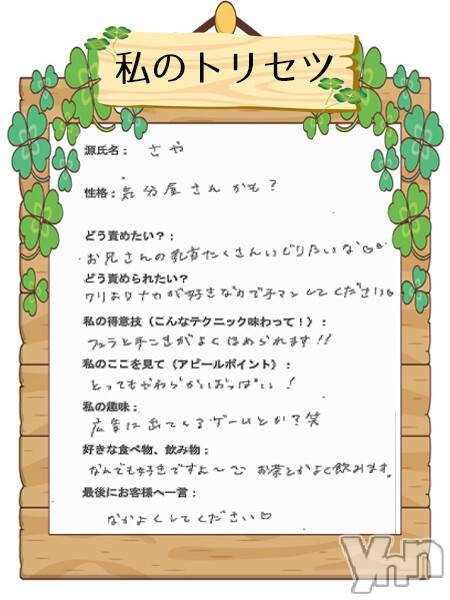 私のトリセツ
源氏名： さや
性格： 気分屋さんかも？
どう責めたい？：
お兄さんの乳首たくさんいじりたいな♡♡
どう責められたい？
クリよりナカが好きなので手マンしてください♡
私の得意技（こんなテクニック味わって！）：
フェラと手コキがよくほめられます!!
私のここを見て《アピールポイント》：
とってもやわらかいおっぱい！
私の趣味：
広告に出てくるゲームとか？笑
好きな食べ物、飲み物：
なんでも好きですよ〜 お茶とかよく飲みます。
最後にお客様へ一言：
なかよくしてください♡